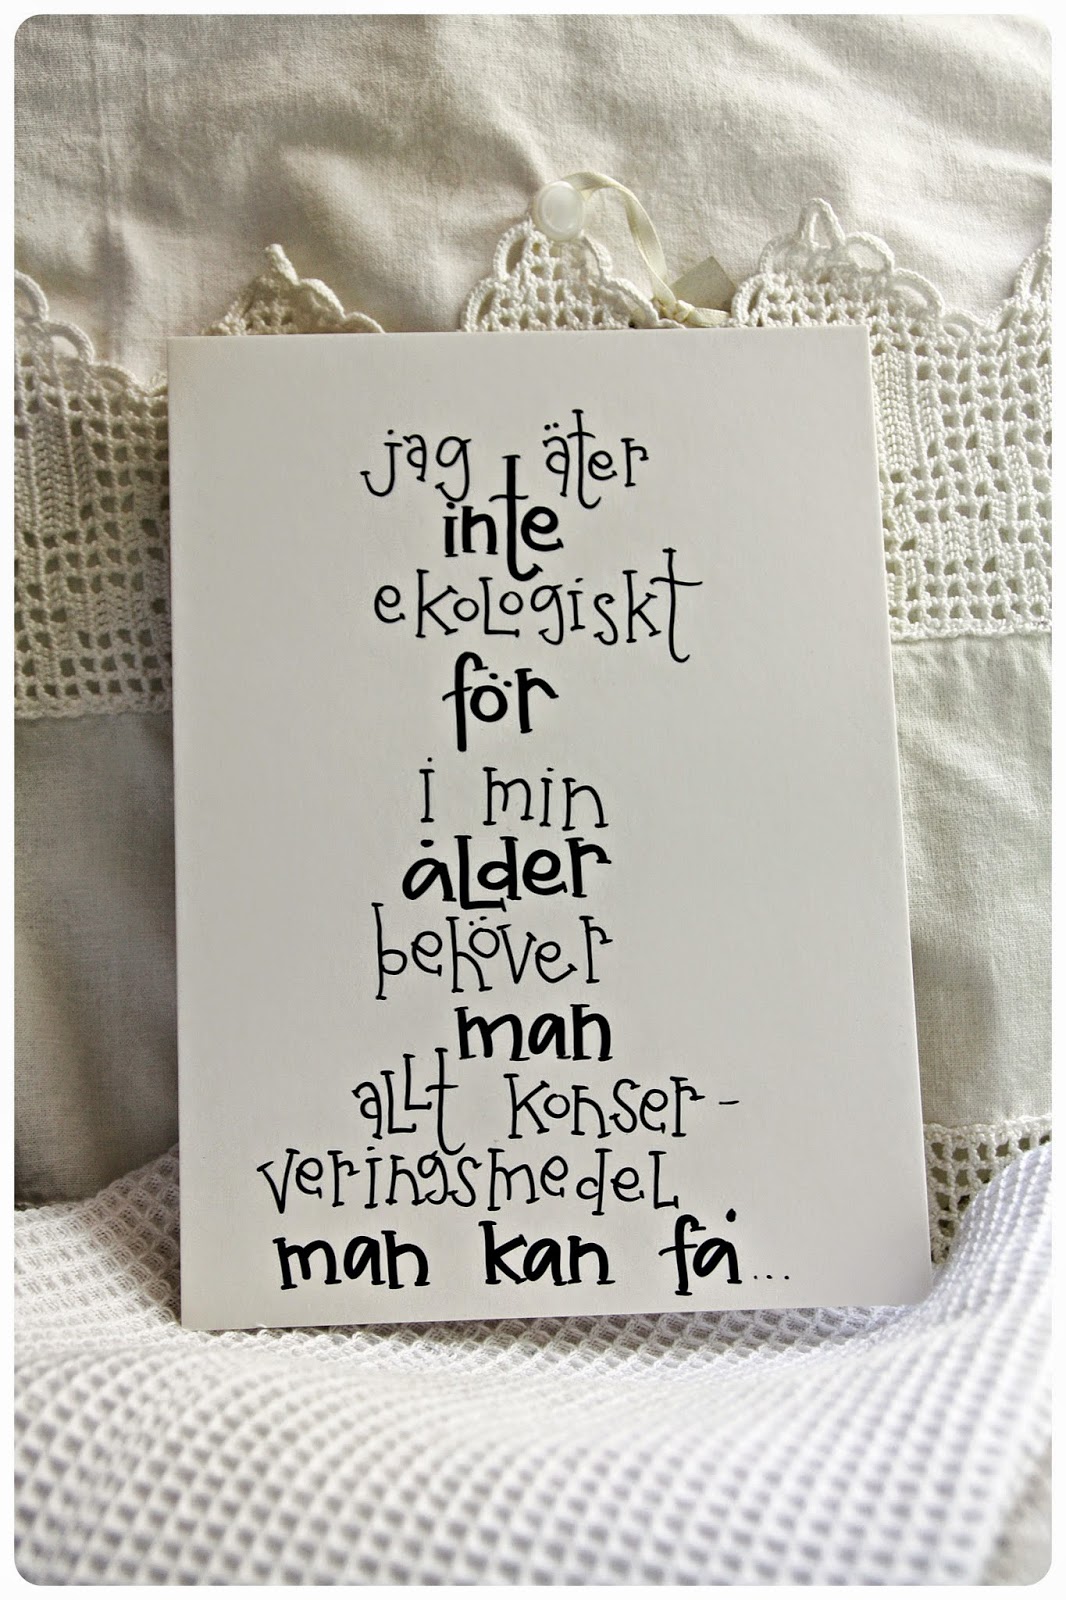 jag äter
inte
ekologiskt
för
i min
ålder
behöver
man
allt konser-
veringsmedel
man kan få...